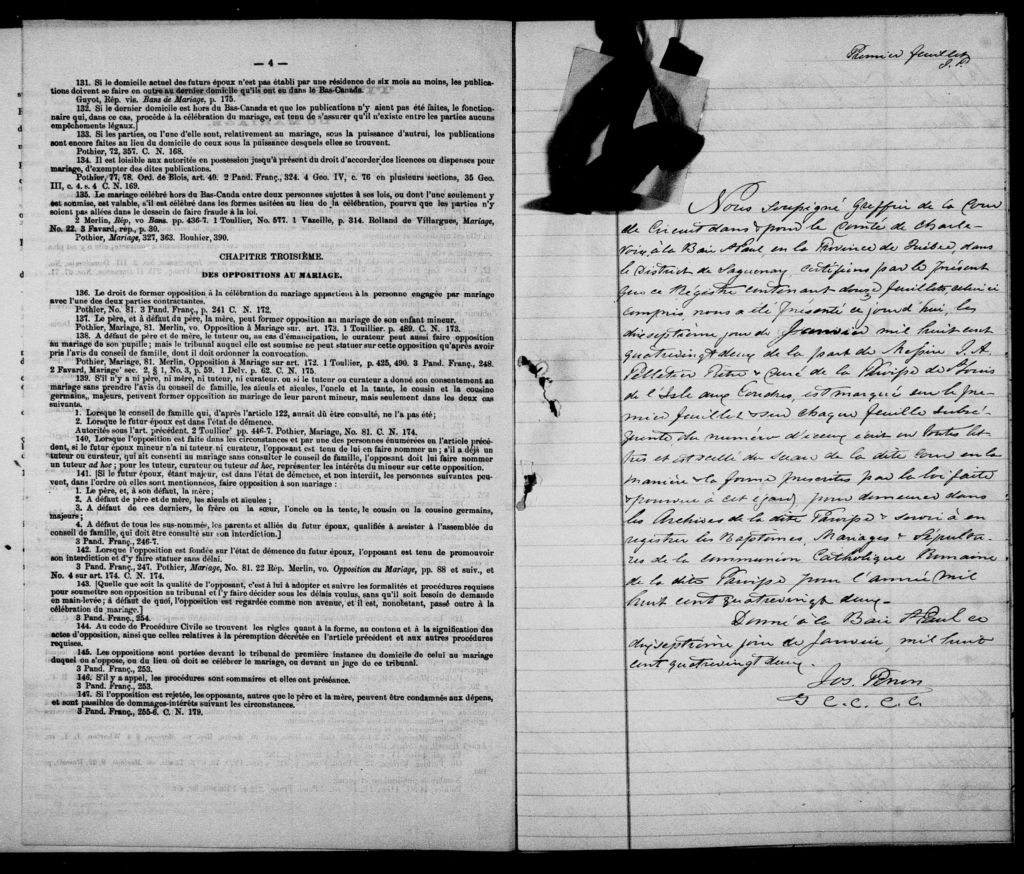 — 4 —
131. Si le domicile actuel des futurs époux n'est pas établi par une résidence de six mois au moins, les publica-
tions doivent se faire en outre au dernier domicile qu'ils ont eu dans le Bas-Canada.
Guyot, Rép. vis. Bans de Mariage, p. 175.
132. Si le dernier domicile est hors du Bas-Canada et que les publications n'y aient pas été faites, le fonction-
naire qui, dans ce cas, procède à la célébration du mariage, est tenu de s'assurer qu'il n'existe entre les parties aucuns
empêchements légaux.]
133. Si les parties, ou l'une d'elle sont, relativement au mariage, sous la puissance d'autrui, les publications
sont encore faites au lieu du domicile de ceux sous la puissance desquels elles se trouvent.
Pothier, 72, 357. C. N. 168.
134. Il est loisible aux autorités en possession jusqu'à présent du droit d'accorder des licences ou dispenses pour
mariage, d'exempter des dites publications.
Pothier, 77, 78. Ord. de Blois, art. 40. 2 Pand. Franç., 324. 4 Geo. IV, c. 76 en plusieurs sections, 35 Geo.
III, c. 4. s. 4 C. N. 169.
135. Le mariage célébré hors du Bas-Canda entre deux personnes sujettes à ses lois, ou dont l'une seulement y
est soumise, est valable, s'il est célébré dans les formes usitées au lieu de la célébration, pourvu que les parties n'y
soient pas allées dans le dessein de faire fraude à la loi.
2 Merlin, Rép, vo Bans. pp. 436-7. 1 Toullier, No. 577. 1 Vazeille, p. 314. Rolland de Villargues, Mariage,
No. 22. 3 Favard, rép., p. 30.
Pothier, Mariage, 327, 363. Bouhier, 390.
CHAPITRE TROISIÈME.
DES OPPOSITIONS AU MARIAGE.
136. Le droit de former opposition à la célébration du mariage appartient à la personne engagée par mariage
avec l'une des deux parties contractantes.
Pothier, No. 81. 3 Pand. Franç., p. 241 C. N. 172.
137. Le père, et à défaut du père, la mère, peut former opposition au mariage de son enfant mineur.
Pothier, Mariage, 81. Merlin, vo. Opposition à Mariage sur. art. 173. 1 Touillier. p. 489. C. N. 173.
138. A défaut de père et de mère, le tuteur ou, au cas d'émancipation, le curateur peut aussi faire opposition
au mariage de son pupille; mais le tribunal auquel elle est soumise ne peut statuer sur cette opposition qu'après avoir
pris l'avis du conseil de famille, dont il doit ordonner la convocation.
Pothier, Mariage, 81. Merlin, Opposition à Mariage sur art. 172. 1 Toullier, p. 425, 490. 3 Pand. Franç., 248.
2 Favard, Mariage' sec. 2, § 1, No. 3, p. 59. 1 Delv. p. 62. C. N. 175.
139. S'il n'y a ni père, ni mère, ni tuteur, ni curateur, ou si le tuteur ou curateur a donné son consentement au
mariage sans prendre l'avis du conseil de famille, les aïeuls et aïeules, l'oncle et la tante, le cousin et la cousine
germains, majeurs, peuvent former opposition au mariage de leur parent mineur, mais seulement dans les deux cas
suivants.
1. Lorsque le conseil de famille qui, d'après l'article 122, aurait dû être consulté, ne l'a pas été;
2. Lorsque le futur époux est dans l'état de démence.
Autorités sous l'art. précédent. 2 Toullier' pp. 446-7. Pothier, Mariage, No. 81. C. N. 174.
140. Lorsque l'opposition est faite dans les circonstances et par une des personnes énumérées en l'article précé-
dent, si le futur époux mineur n'a ni tuteur ni curateur, l'opposant est tenu de lui en faire nommer un; s'il a déjà un
tuteur ou curateur, qui ait consenti au mariage sans consulter le conseil de famille, l'opposant doit lui faire nommer
un tuteur ad hoc; pour les tuteur, curateur ou tuteur ad hoc, représenter les intérêts du mineur sur cette opposition.
141. [Si le futur époux, étant majeur, est dans l'état de démence, et non interdit, les personnes suivantes peu-
vent, dans l'ordre où elles sont mentionnées, faire opposition à son mariage:
1. Le père, et, à son défaut, la mère;
2. A défaut de père et de mère, les aïeuls et aïeules;
3. A défaut de ces derniers, le frère ou la sœur, l'oncle ou la tante, le cousin ou la cousine germains,
majeurs;
4. A défaut de tous les sus-nommés, les parents et alliés du futur époux, qualifiés à assister à l'assemblée du
conseil de famille, qui doit être consulté sur son interdiction.]
3 Pand. Franç., 246-7.
142. Lorsque l'opposition est fondée sur l'état de démence du futur époux, l'opposant est tenu de promouvoir
son interdiction et d'y faire statuer sans délai.
3 Pand. Franç., 247. Pothier, Mariage, No. 81. 22 Rép. Merlin, vo. Opposition au Mariage, pp. 88 et suiv., et
No. 4 sur art. 174. C. N. 174.
143. [Quelle que soit la qualité de l'opposant, c'est à lui à adopter et suivre les formalités et procédures requises
pour soumettre son opposition au tribunal et l'y faire décider sous les délais voulus, sans qu'il soit besoin de demande
en main-levée; à défaut de quoi, l'opposition est regardée comme non avenue, et il est, nonobstant, passé outre à la
célébration du mariage.]
3 Pand. Franç., 254.
144. Au code de Procédure Civile se trouvent les règles quant à la forme, au contenu et à la signification des
actes d'opposition, ainsi que celles relatives à la péremption décrétée en l'article précédent et aux autres procédures
requises.
145. Les oppositions sont portées devant le tribunal de première instance du domicile de celui au mariage
duquel on s'oppose, ou du lieu où doit se célébrer le mariage, ou devant un juge de ce tribunal.
3 Pand. Franç., 253.
146. S'il y a appel, les procédures sont sommaires et elles ont préséance.
3 Pand. Franç., 253.
147. Si l'opposition est rejetée, les opposants, autres que le père et la mère, peuvent être condamnés aux dépens,
et sont passibles de dommages-intérêts suivant les circonstances.
3 Pand. Franç., 255-6. C. N. 179.
Premier feuillet
J. P.
Nous soussigné Greffier de la Cour
de Circuit dans & pour le Comté de Charle-
voix, à la Baie St Paul, en la Province de Québec dans
le District de Saguenay certifions par le présent
que ce Régistre contenant douze feuillets, celui ci
compris, nous a été présenté ce jourd'hui, le
dixseptième jour de Janvier mil huit cent
quatrevingt deux de la part de Messire J. A.
Pelletier Ptre & Curé de la Paroisse de St Louis
de l'Isle aux Coudres, est marqué sur le pre-
mier feuillet & sur chaque feuille subsé-
quente du numéro d'iceux écrit en toutes let-
tres et est scellé du sceau de la dite Cour en la
manière & la forme prescrites par la loi faite
& pourvue à cet égard pour demeurer dans
les Archives de la dite Paroisse & servir à en
registrer les Baptêmes, Mariages & Sépultu-
res de la communion Catholique Romaine
de la dite Paroisse pour l'année mil
huit cent quatrevingt deux.
Donné à la Baie St Paul ce
dixseptième jour de Janvier, mil huit
cent quatrevingt deux.
Jos. Perron
G C. C. C.